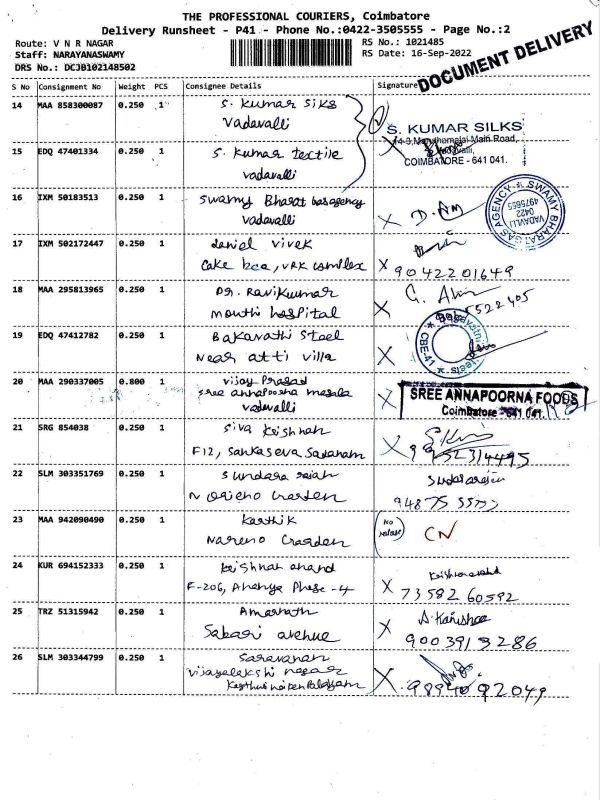 THE PROFESSIONAL COURIERS, Coimbatore
Delivery Runsheet - P41 - Phone No.:0422-3505555 - Page No.:2
Route: V N R NAGAR
Staff: NARAYANASWAMY
DRS No.: DCJB102148502
RS No.: 1021485
RS Date: 16-Sep-2022
DOCUMENT DELIVERY
S No Consignment No Weight PCS Consignee Details Signature
14 MAA 858300087 0.250 1 S. Kumar Siks
Vadavalli
S. KUMAR SILKS
Main Road,
COIMBATORE - 641 041.
15 EDQ 47401334 0.250 1 S. Kumar textile
vadavalli
16 IXM 50183513 0.250 1 Swamy Bharat gasagency
Vadavalli
SWAMY BHARAT GAS AGENCY
VADAVLLI
0422
4975655
17 IXM 502172447 0.250 1 daniel vivek
Cake bea, VRK complex
X 9042201649
18 MAA 295813965 0.250 1 Dr. Ravikumar
mouthi hospital
X
19 EDQ 47412782 0.250 1 Bakavathi Steel
Near atti villa
X
CBE-41
20 MAA 290337005 0.800 1 vijay Prasad
Sree annapoorna masala
vadavalli
X
SREE ANNAPOORNA FOODS
Coimbatore - 641 041.
21 SRG 854038 0.250 1 Siva Krishnan
F12, Sankaseva Sadanam
X 9952314495
22 SLM 303351769 0.250 1 Sundara rajan
94875 55777
23 MAA 942090490 0.250 1 Karthik
Nareno Garden
CN
24 KUR 694152333 0.250 1 Krishnan anand
F-206, Ananya Phase -4
X 73582 60592
25 TRZ 51315942 0.250 1 Amarnath
Sabari avenue
X 9003913286
26 SLM 303344799 0.250 1 Saravanan
vijayalakshi nagar
X 9894092049